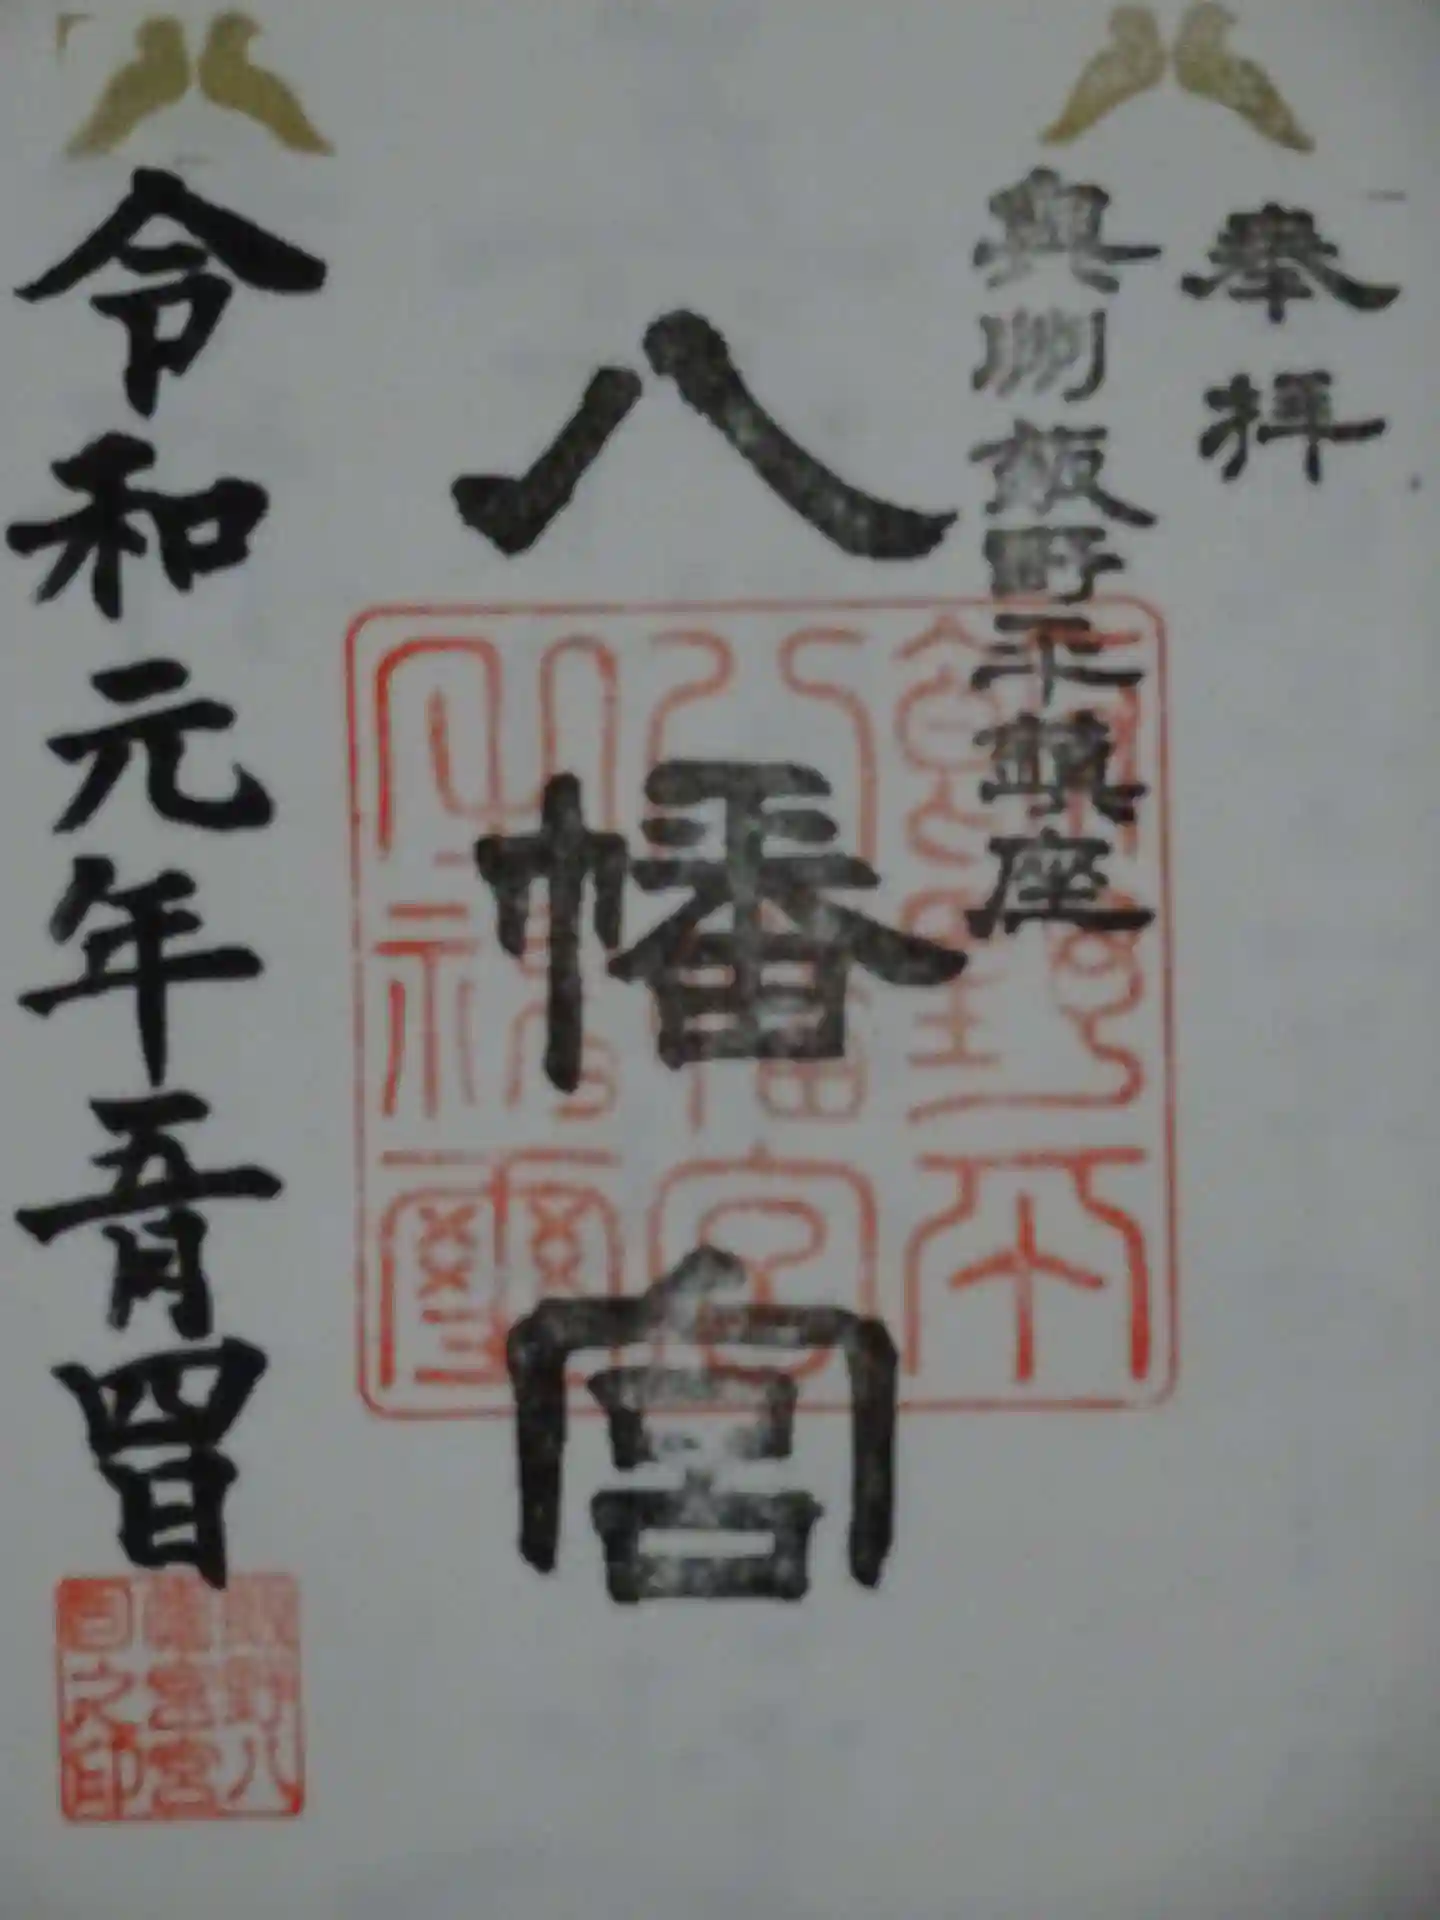 奉拝
奥州飯野平鎮座
八幡宮
令和元年五月四日
飯野八
幡宮宮
司之印